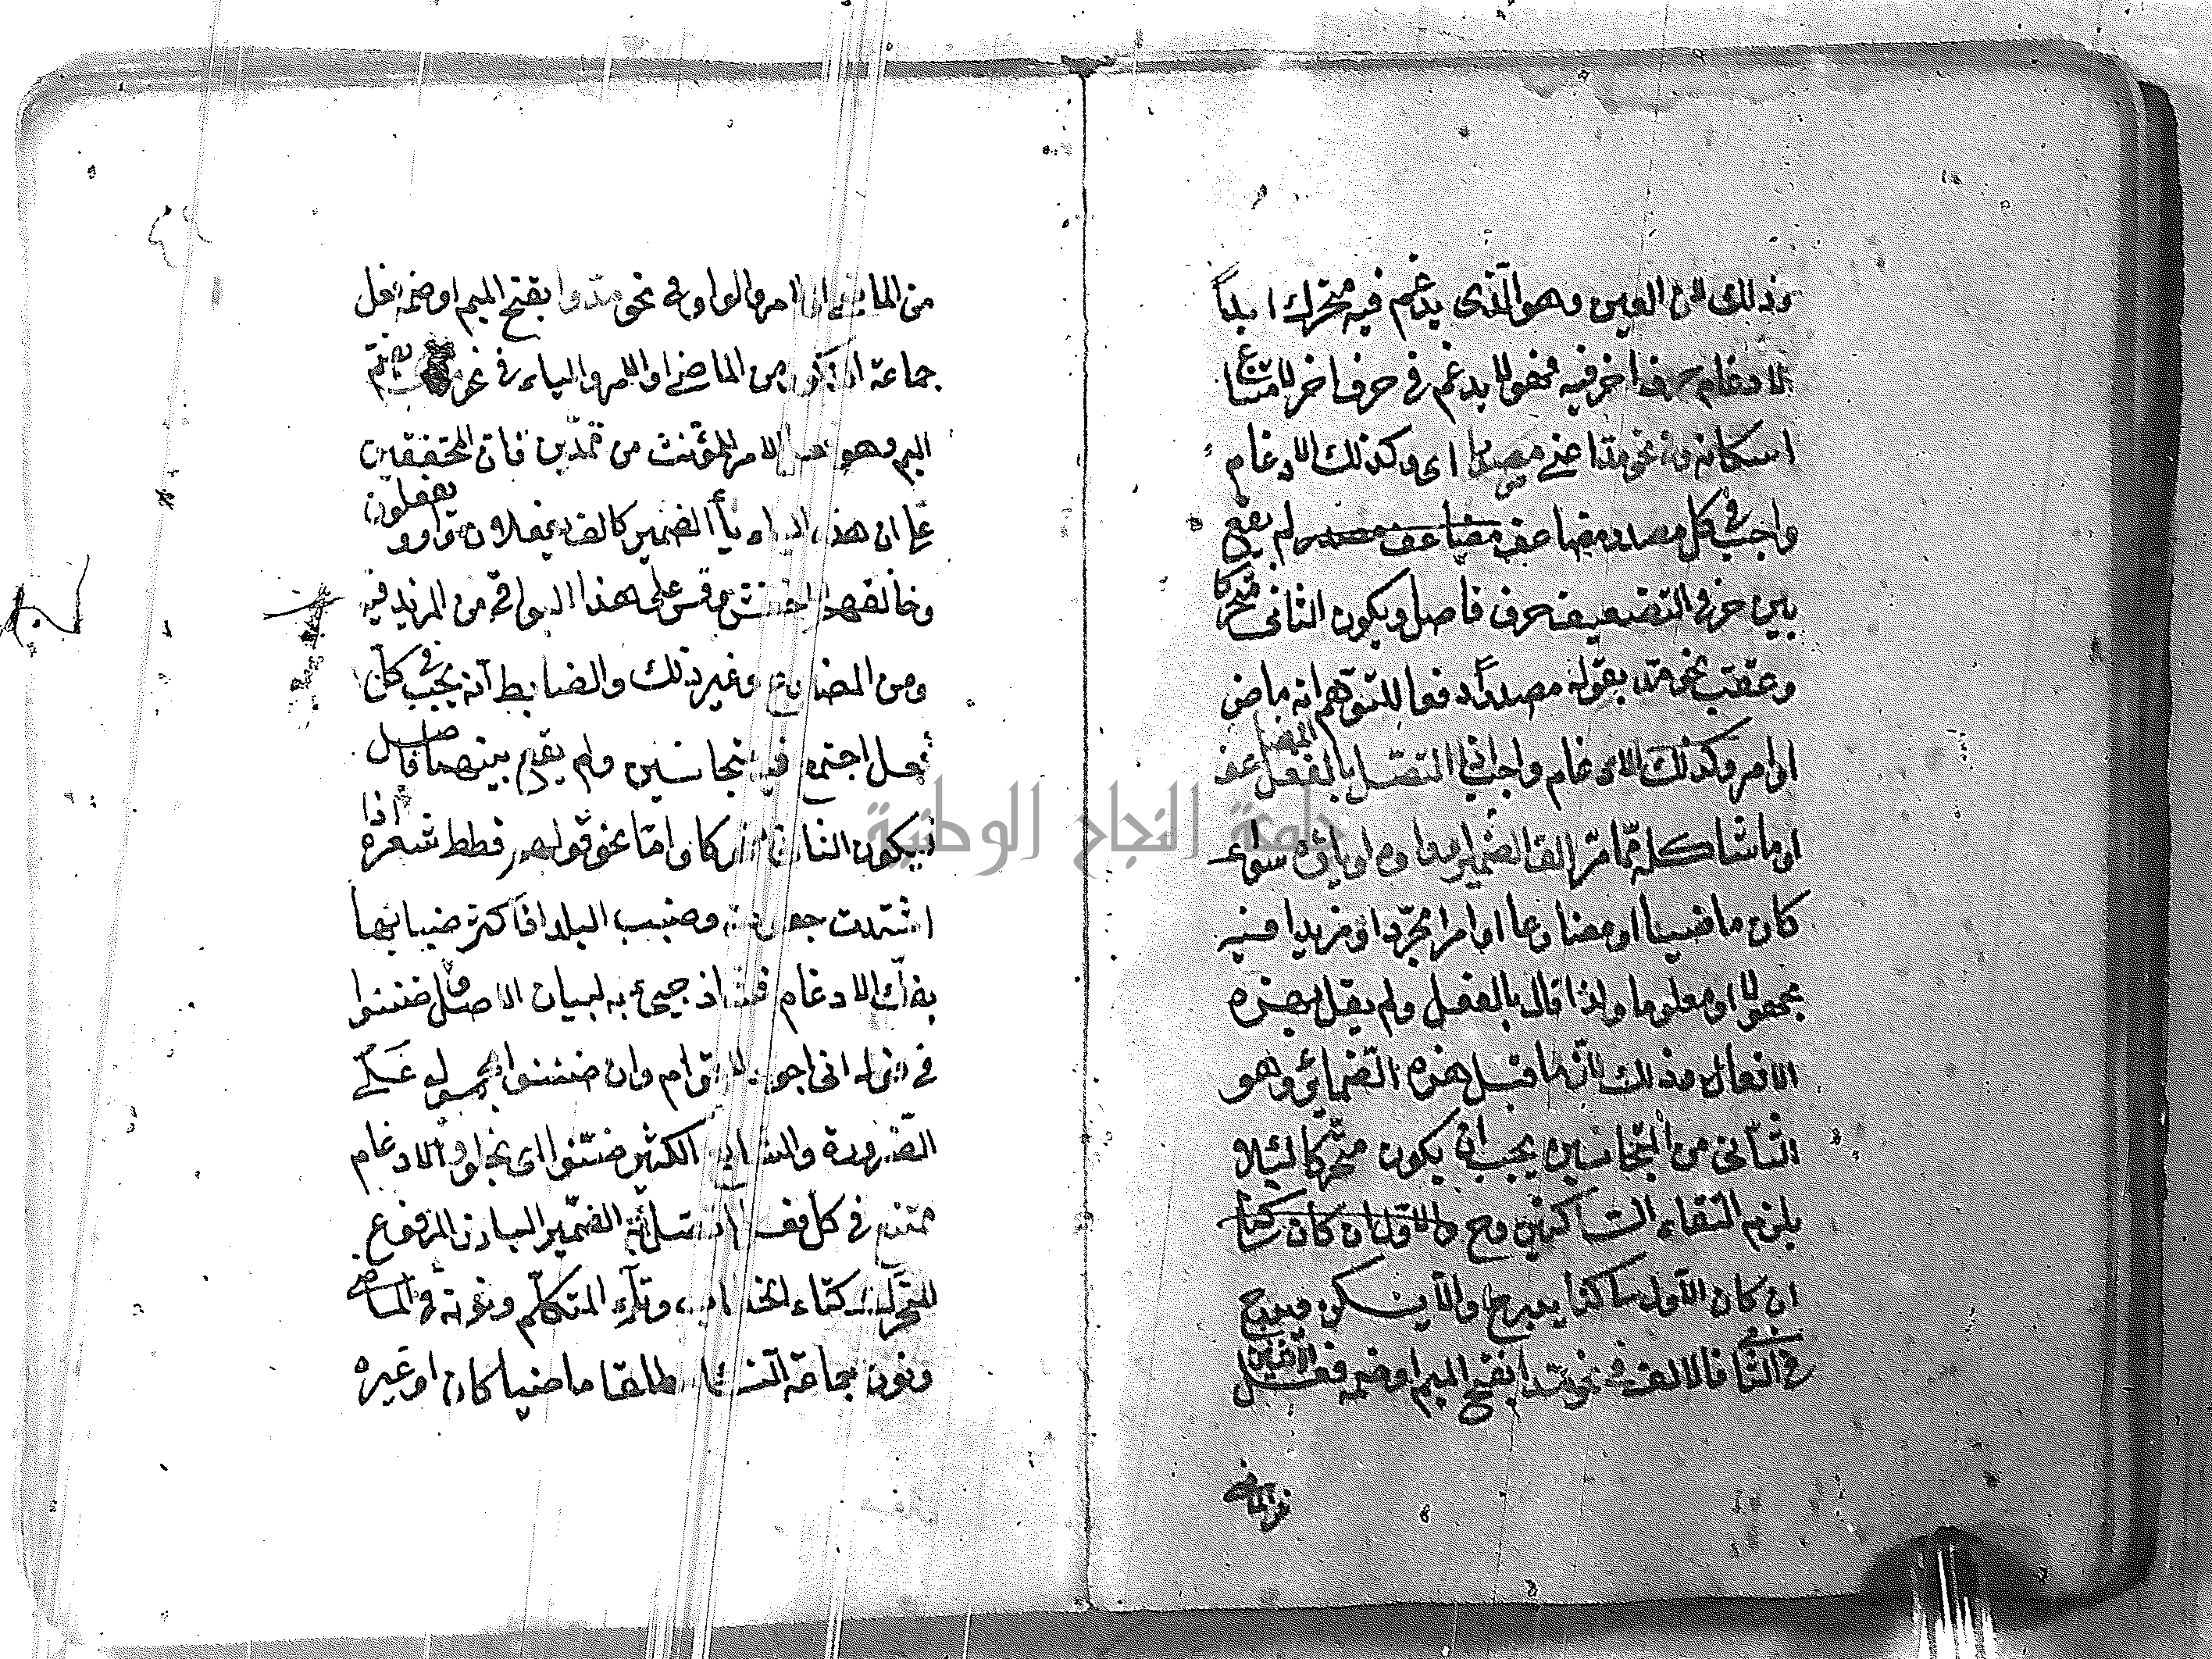 وذلك لان العين وهو الذى يدغم فيه متحرك ابداً
الادغام حرف اخر فيه فهو لا يدغم فى حرف اخر لامتناع
اسكانه وفى نحو مدا اعنى مصدرا اى وكذلك الادغام
واجب فى كل مصدر مضاعف لم يقع
بين حرفى التضعيف حرف فاصل ويكون الثانى متحركا
وعقب نحو مد بقوله مصدراً دفعا للتوهم انه ماض
او امر وكذلك الادغام واجب اذا اتصل بالفعل المضاعف
او ما شاكله مما مر الف الضمير او واوه او ياؤه سواء
كان ماضيا او مضارعا او امرا مجردا او مزيدا فيه
مجهولا او معلوما ولذا قال بالفعل ولم يقل بهذه
الافعال وذلك لان ما قبل هذه الضمائر وهو
الثانى من المتجانسين يجب ان يكون متحركا لئلا
يلزم التقاء الساكنين وح والاول ان كان كنا
ان كان الاول ساكنا يدرج والا يسكن ويدرج
فى الثانى فالالف فى نحو مدا بفتح الميم او ضمه فعل الاثنين
من الماضى
من الماضى او الامر والواو فى نحو مدوا بفتح الميم او ضمه فعل
جماعة الذكور من الماضى او الامر والياء فى نحو مدى بضم
الميم وهو فعل الامر للمؤنث من تمدين فان المحققين
على ان هذه الياء ياأ الضمير كالف يفعلان وواو يفعلون
وخالفهم الاخفش وقس على هذا البواقى من المزيد فيه
ومن المضارع وغير ذلك والضابط انه يجب فى كل
فعل اجتمع فيه متجانسين ولم يقع بينهما فاصل
فيكون الثانى متحركا واما نحو قولهم قطط شعره اذا
اشتدت جعودته وضبب البلد اذا كثر ضبابها
بفك الادغام فشاذ جيئ به لبيان الاصل وضننوا
فى قوله انى اجود لاقوام وان ضننوا محمول على
الضرورة والشايع الكثير ضنّوا اى بخلوا والادغام
ممتنع فى كل فعل اتصل به الضمير البارز المرفوع
المتحرك كتاء الخطاب وتاء المتكلم ونونه فى الماضى
ونون جماعة النساء مطلقا ماضيا كان او غيره
جامعة النجاح الوطنية